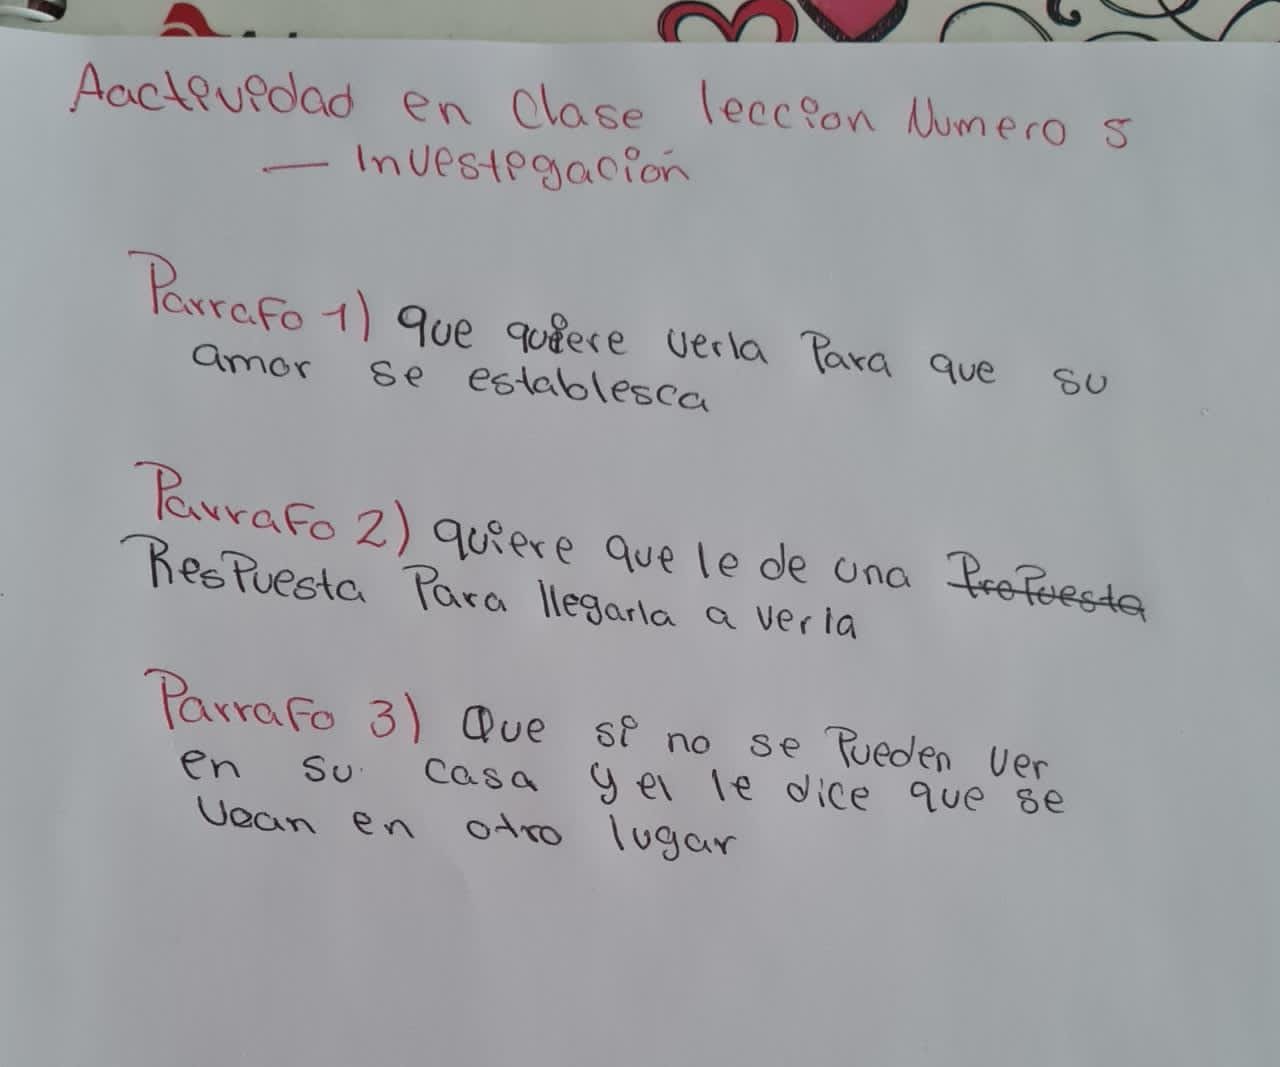 Aactividad en Clase leccion Numero 5
— Investigación
Parrafo 1) que quiere verla Para que su
amor se establesca
Parrafo 2) quiere que le de una Propuesta
Respuesta Para llegarla a verla
Parrafo 3) Que si no se Pueden ver
en su casa y el le dice que se
vean en otro lugar